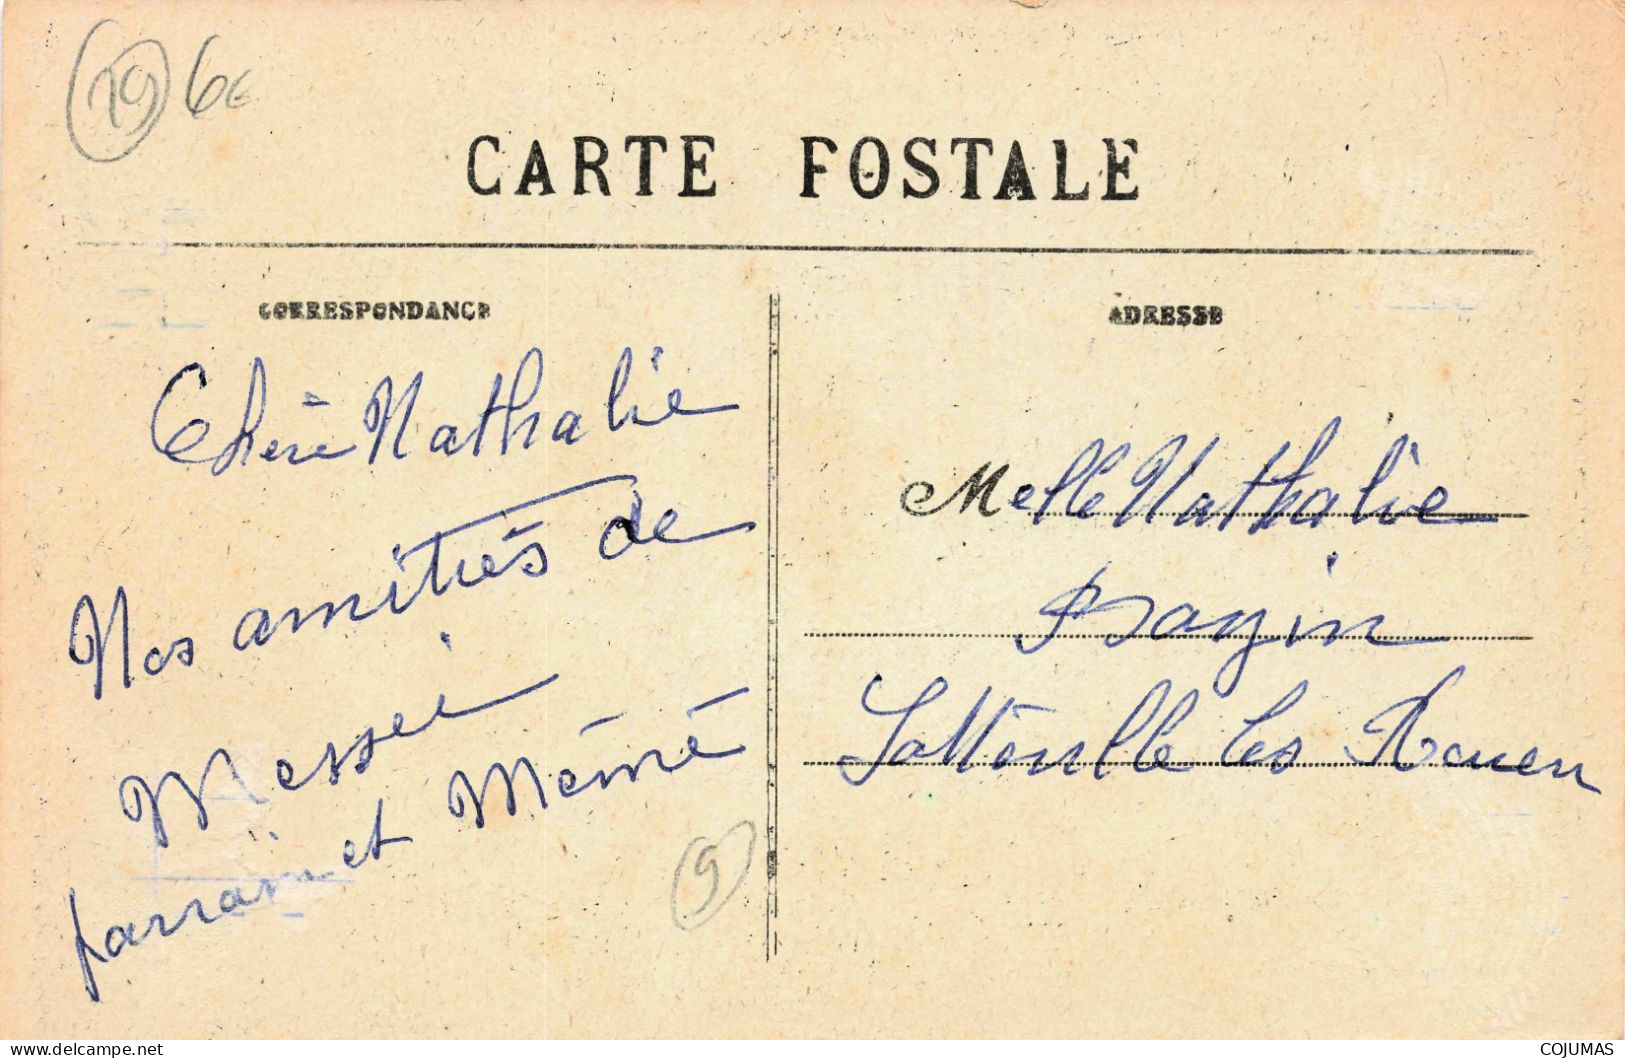 19 6€
CARTE POSTALE
CORRESPONDANCE
ADRESSE
Chère Nathalie
Nos amitiés de
Messei
parrain et Mémé
9
Melle Nathalie
Bazin
Sotteville les Rouen
delcampe.net
COJUMAS